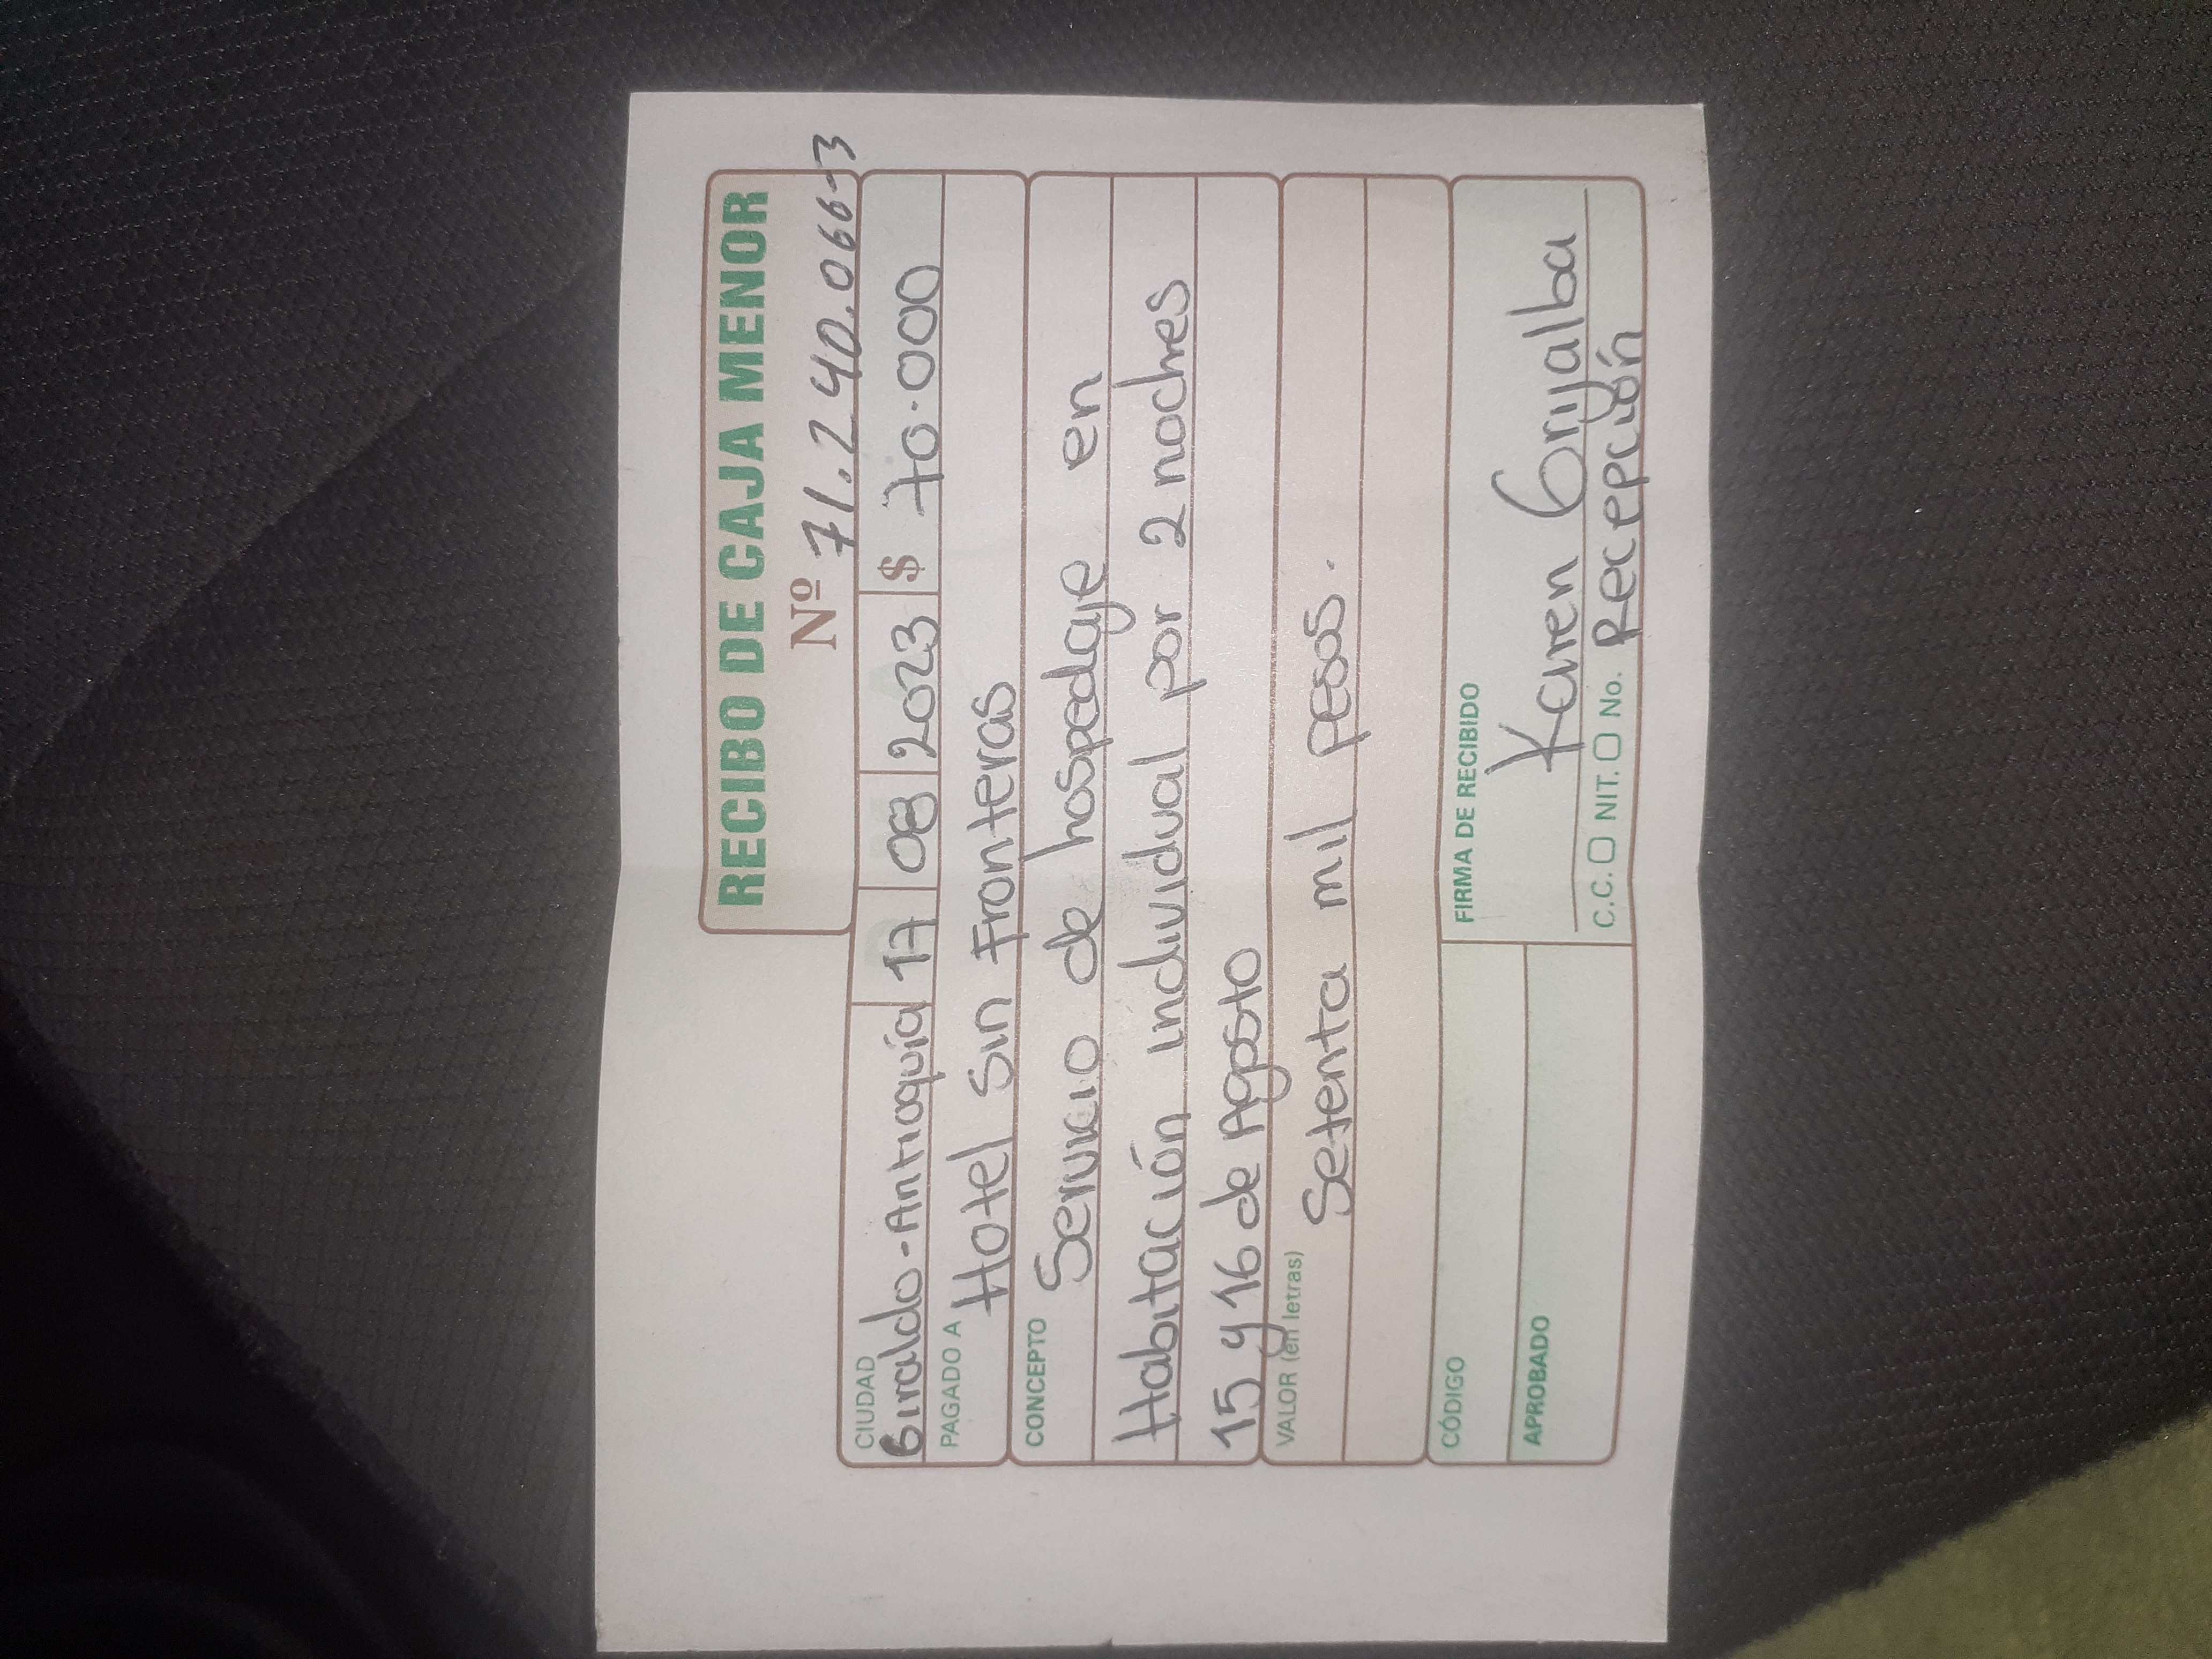 RECIBO DE CAJA MENOR
Nº 71.240.066-3
CIUDAD
Giraldo-Antioquía 17 08 2023 $ 70.000
PAGADO A Hotel Sin Fronteras
CONCEPTO Servicio de hospedaje en
Habitación individual por 2 noches
15 y 16 de Agosto
VALOR (en letras) Setenta mil pesos.
CÓDIGO
FIRMA DE RECIBIDO
Karen Grijalba
APROBADO
C.C. NIT. No. Recepción